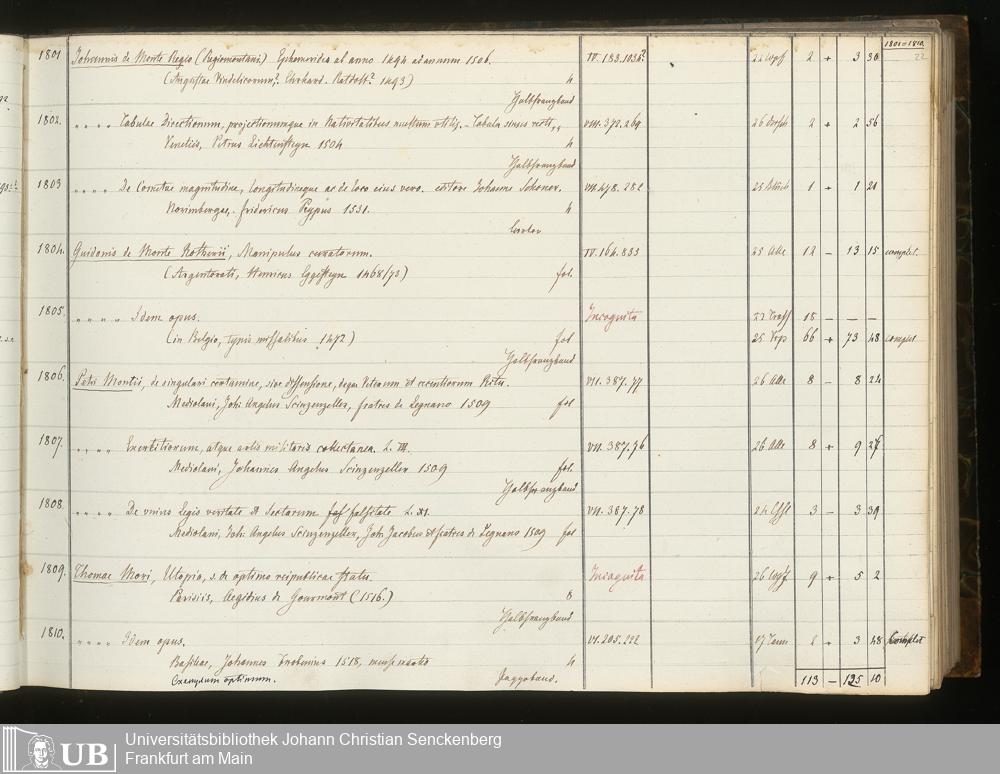 1801-1810.
22
1801 Johannis de Monte Regio (Regiomontani) Ephemerides ab anno 1494 ad annum 1506. IV. 183. 22 2 + 3 30
(Augustae Vindelicorum, Erhard. Ratdolt 1493) 4
Halbfranzband
1802. " " " " Tabulae Directionum, projectionumque in Nativitatibus multum utilis. - Tabula sinus recti " VIII. 372. 269 26 2 + 2 56
Venetiis, Petrus Lichtensteyn 1504 4
Halbfranzband
1803 " " " " De Cometae magnitudine, longitudineque ac de loco eius vero. editore Johanne Schoner. VII. 478. 282 25 1 + 1 21
Norimbergae, Fridericus Peypus 1531. 4
1804. Guidonis de Monte Rotherii, Manipulus curatorum. IV. 164. 833 25 12 - 13 15 complet.
(Argentorati, Henricus Eggesteyn 1468/73) fol.
1805. " " " " Idem opus. Incognita 22 18 - — —
(in Belgio, typis missalibus 1472) fol 25 66 + 73 48 complet
Halbfranzband
1806. Petri Montii, de singulari certamine, sive dissensione, deque Veterum et recentiorum Ritu. VII. 387. 77 26 8 - 8 24
Mediolani, Joh. Angelus Scinzenzeller, fratres de Legnano 1509 fol
1807. " " " " Exercitiorum, atque artis militaris collectanea. L. III. VII. 387. 76 26 8 + 9 27
Mediolani, Johannes Angelus Scinzenzeller 1509 fol.
Halbfranzband
1808. " " " " De unius Legis veritate et Sectarum falsitate L. XI. VII. 387. 78 24 3 - 3 39
Mediolani, Joh. Angelus Scinzenzeller, Joh. Jacobus et fratres de Legnano 1509 fol
1809. Thomae Mori, Utopia, s. de optimo reipublicae statu. Incognita 26 9 + 5 2
Parisiis, Aegidius de Gourmont (1516.) 8
Halbfranzband
1810. " " " " Idem opus. VI. 205. 222 17 2 + 3 48 Complet
Basileae, Johannes Frobenius 1518, mense martio 4
Exemplum optimum. Pappband.
113 - 125 10
UB Universitätsbibliothek Johann Christian Senckenberg
Frankfurt am Main